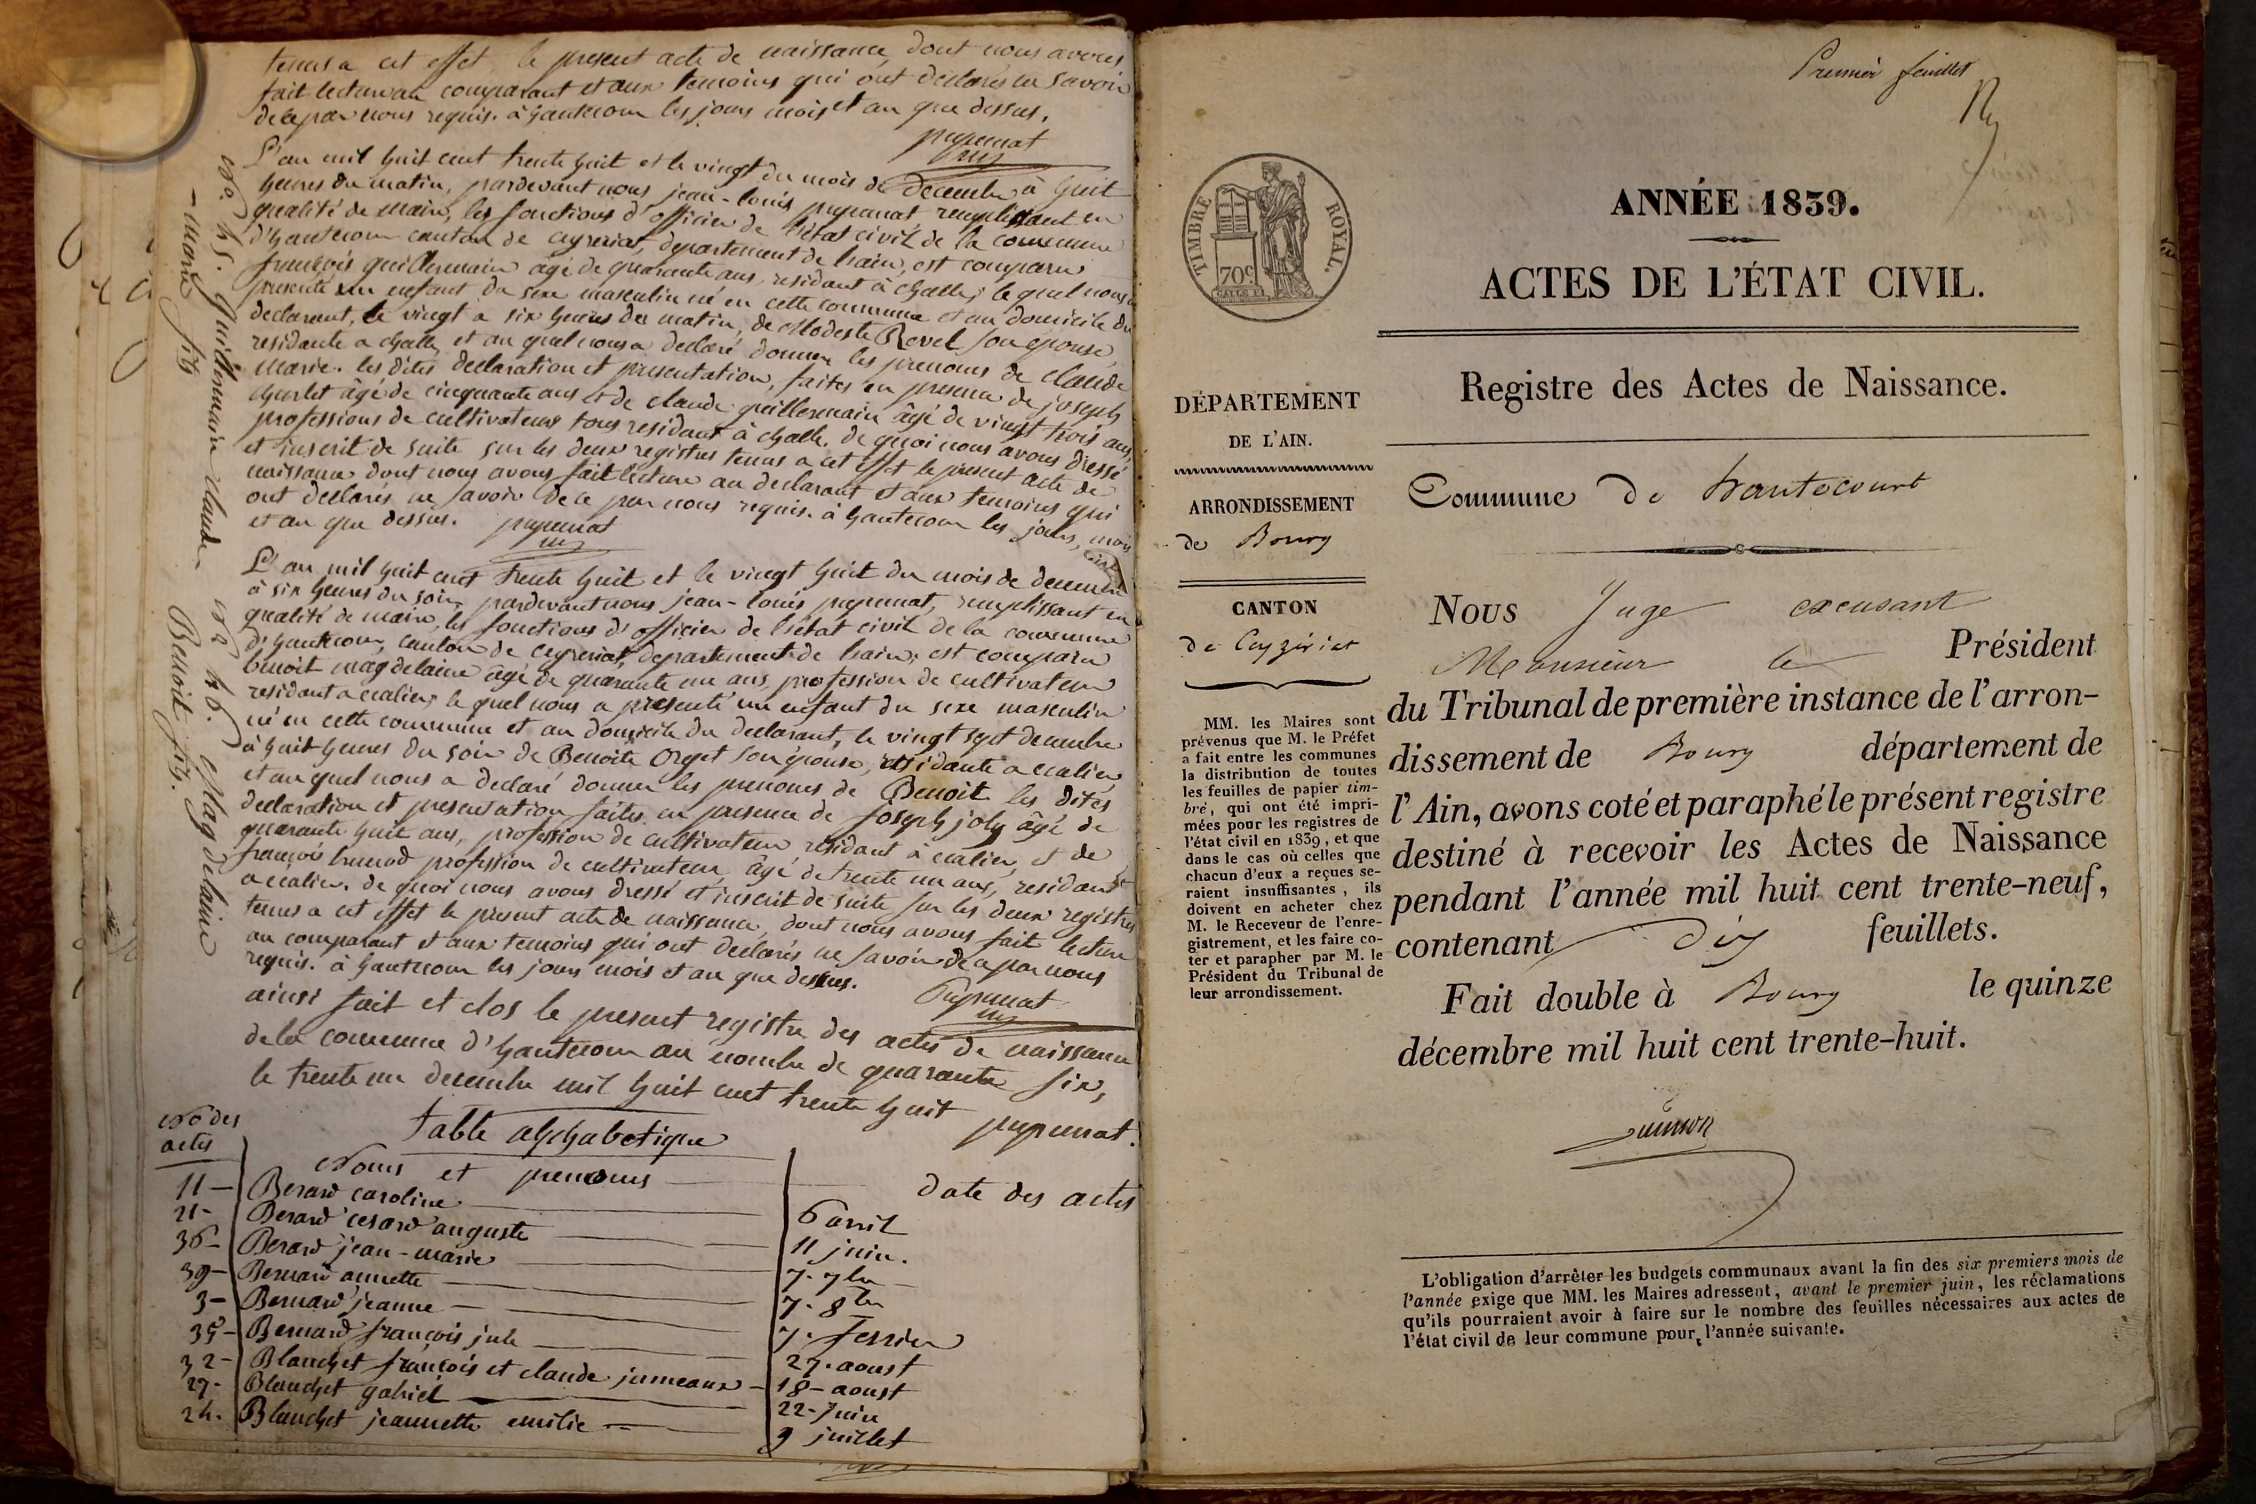 tenus a cet effet le present acte de naissance, dont nous avons
fait lecture au comparant et aux temoins qui ont declarés ne savoir
de ce par nous requis. à hautecour les jours mois et an que dessus.
pupunat
L'an mil huit cent trente huit et le vingt du mois de decembre à huit
heures du matin, pardevant nous jean-louis pupunat remplissant en
qualité de maire, les fonctions d'officier de l'état civil de la commune
d'hautecour canton de ceyzeriat, departement de l'ain, est comparu
françois guillermain âgé de quarante ans, residant à challe, le quel nous a
presenté un enfant du sexe masculin né en cette commune et au domicile du
declarant, le vingt a six heures du matin, de Modeste Revel son epouse,
residante a challe, et au quel nous a declaré donner les prenoms de claude
marie. les dites declaration et presentation, faites en presence de joseph
charlet âgé de cinquante ans et de claude guillermain âgé de vingt trois ans,
professions de cultivateurs tous residant à challe. de quoi nous avons dressé
et inscrit de suite sur les deux registres tenus a cet effet le present acte de
naissance dont nous avons fait lecture au declarant et aux temoins qui
ont declarés ne savoir de ce par nous requis. à hautecour les jours, mois
et an que dessus. pupunat
No. 45. Guillermain claude
-marie fils
L'an mil huit cent trente huit et le vingt huit du mois de decembre
à six heures du soir, pardevant nous jean-louis pupunat, remplissant en
qualité de maire, les fonctions d'officier de l'état civil de la commune
d'hautecour, canton de ceyzeriat, departement de l'ain, est comparu
benoit magdelaine âgé de quarante un ans, profession de cultivateur
residant a le quel nous a presenté un enfant du sexe masculin
né en cette commune et au domicile du declarant, le vingt sept decembre
à huit heures du soir de Benoite Orget son épouse, residante a
et au quel nous a declaré donner les prenoms de Benoit les dites
declaration et presentation faites en presence de Joseph joly âgé de
quarante huit ans, profession de cultivateur residant à et de
françois brunod profession de cultivateur, âgé de trente un ans, residant
a de quoi nous avons dressé et inscrit de suite sur les deux registres
tenus a cet effet le present acte de naissance, dont nous avons fait lecture
au comparant et aux temoins qui ont declarés ne savoir de ce par nous
requis. à hautecour les jours mois et an que dessus.
Pupunat
No 46. Magdelaine
Benoit fils.
ainsi fait et clos le present registre des actes de naissance
de la commune d'hautecour au nombre de quarante six,
le trente un decembre mil huit cent trente huit pupunat.
No des
actes
Table alphabetique
Noms et prenoms
date des actes
11 - Berard caroline 6 avril
21 - Berard cesard auguste 11 juin.
36 - Berard jean-marie 7. 7bre
39 - Bernard annette 7. 8bre
3 - Bernard jeanne 7. fevrier
35 - Bernard françois jule 27. aoust
32 - Blanchet françois et claude jumeaux - 18 - aoust
27 - Blanchet gabriel 22 - Juin
24. Blanchet jeannette emilie 9 juillet
Premier feuillet
TIMBRE ROYAL.
70c
ANNÉE 1839.
ACTES DE L'ÉTAT CIVIL.
Registre des Actes de Naissance.
DÉPARTEMENT
DE L'AIN.
ARRONDISSEMENT
de Bourg
CANTON
de Ceyzériat
MM. les Maires sont
prévenus que M. le Préfet
a fait entre les communes
la distribution de toutes
les feuilles de papier tim-
bré, qui ont été impri-
mées pour les registres de
l'état civil en 1839, et que
dans le cas où celles que
chacun d'eux a reçues se-
raient insuffisantes, ils
doivent en acheter chez
M. le Receveur de l'enre-
gistrement, et les faire co-
ter et parapher par M. le
Président du Tribunal de
leur arrondissement.
Commune de hautecourt
Nous Juge excusant
Monsieur le Président
du Tribunal de première instance de l'arron-
dissement de Bourg département de
l'Ain, avons coté et paraphé le présent registre
destiné à recevoir les Actes de Naissance
pendant l'année mil huit cent trente-neuf,
contenant dix feuillets.
Fait double à Bourg le quinze
décembre mil huit cent trente-huit.
L'obligation d'arrêter les budgets communaux avant la fin des six premiers mois de
l'année exige que MM. les Maires adressent, avant le premier juin, les réclamations
qu'ils pourraient avoir à faire sur le nombre des feuilles nécessaires aux actes de
l'état civil de leur commune pour l'année suivante.